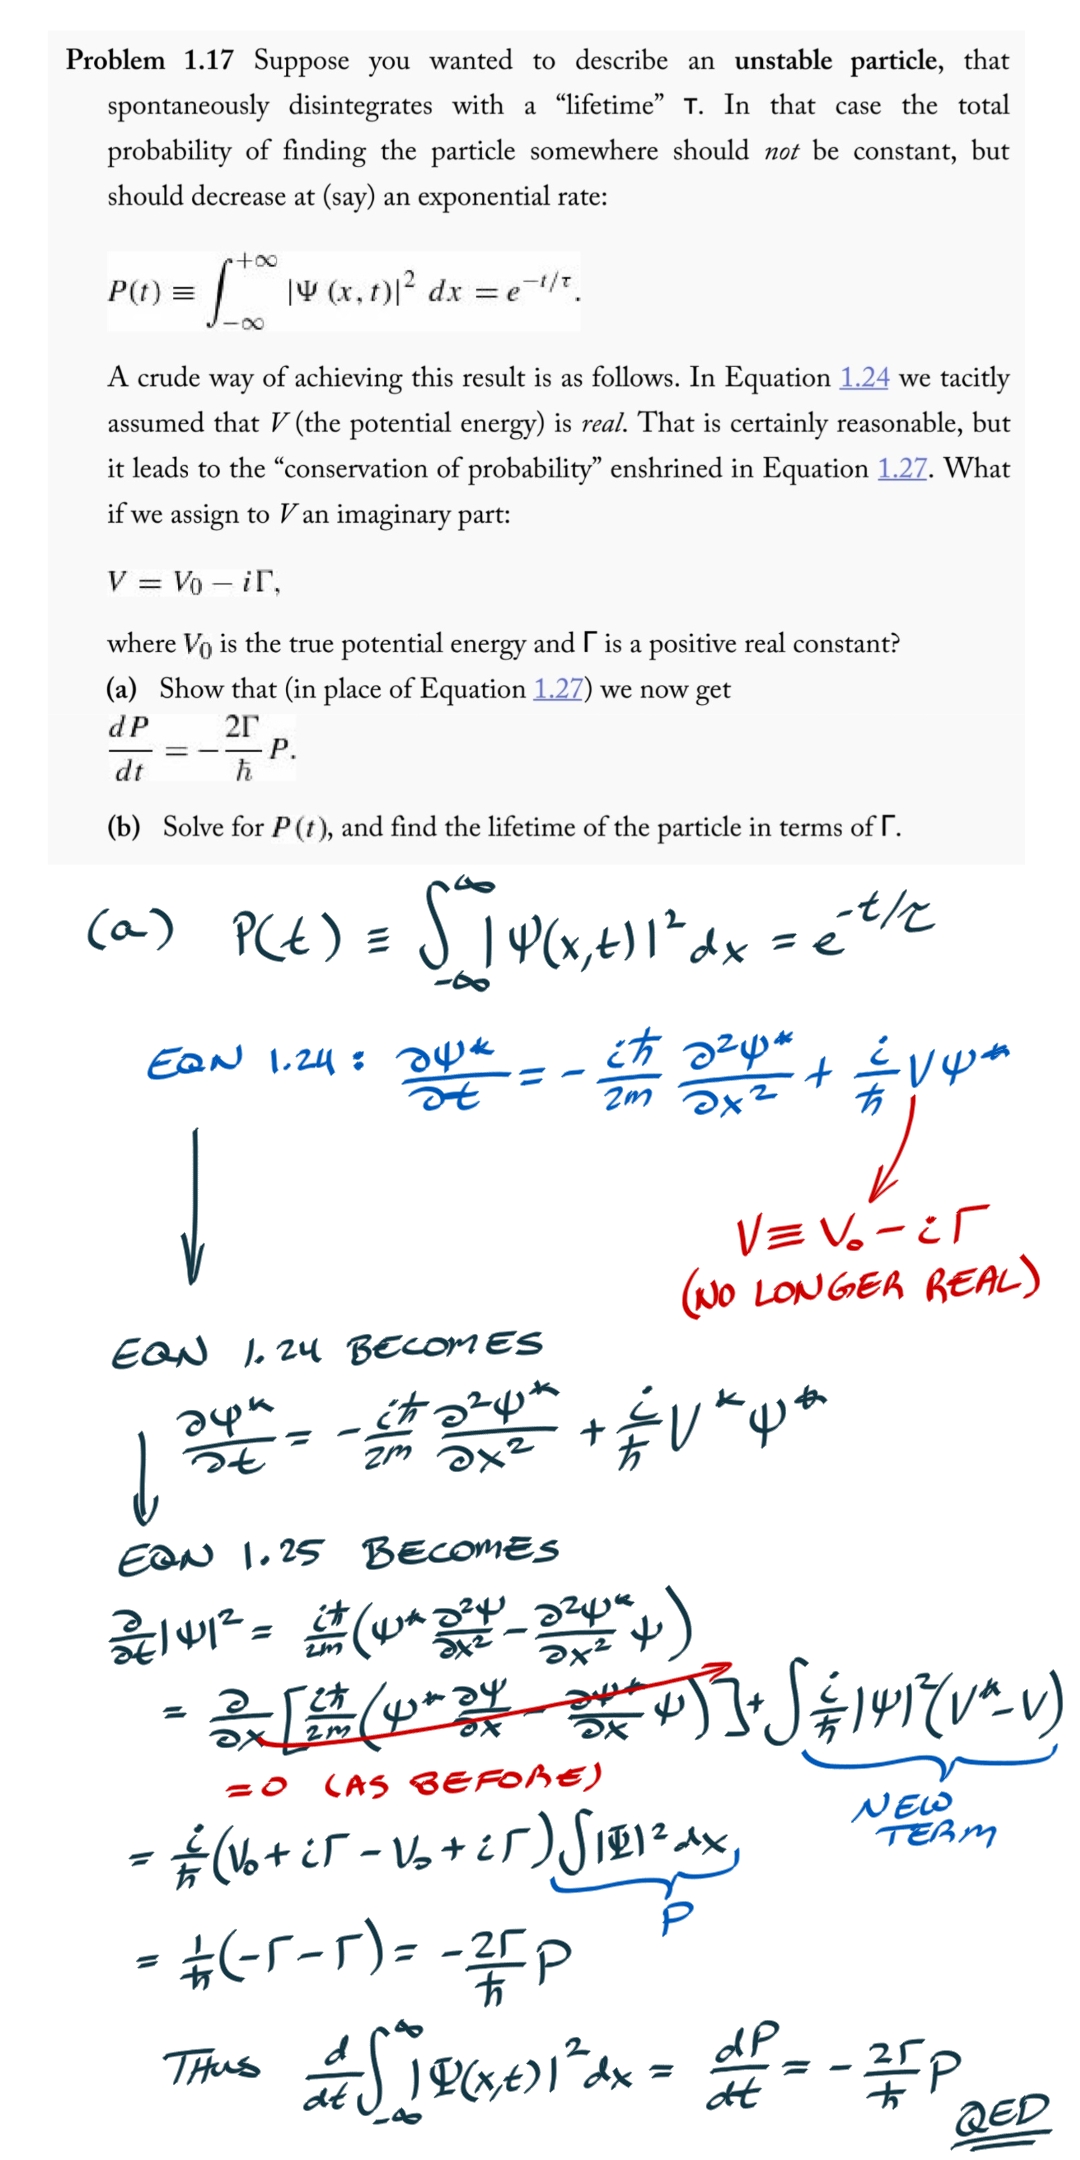 Problem 1.17 Suppose you wanted to describe an unstable particle, that
spontaneously disintegrates with a “lifetime” τ. In that case the total
probability of finding the particle somewhere should not be constant, but
should decrease at (say) an exponential rate:
P(t) ≡ ∫_{−∞}^{+∞} |Ψ (x, t)|² dx = e^{−t/τ}.
A crude way of achieving this result is as follows. In Equation 1.24 we tacitly
assumed that V (the potential energy) is real. That is certainly reasonable, but
it leads to the “conservation of probability” enshrined in Equation 1.27. What
if we assign to V an imaginary part:
V = V₀ − iΓ,
where V₀ is the true potential energy and Γ is a positive real constant?
(a) Show that (in place of Equation 1.27) we now get
dP/dt = −(2Γ/ħ) P.
(b) Solve for P(t), and find the lifetime of the particle in terms of Γ.
(a) P(t) ≡ ∫_{-∞}^{∞} |Ψ(x,t)|² dx = e^{-t/τ}
EQN 1.24 : ∂ψ*/∂t = - iħ/2m ∂²ψ*/∂x² + i/ħ Vψ*
V ≡ V₀ - iΓ
(NO LONGER REAL)
EQN 1.24 BECOMES
∂ψ*/∂t = - iħ/2m ∂²ψ*/∂x² + i/ħ V*ψ*
EQN 1.25 BECOMES
∂/∂t |ψ|² = iħ/2m (ψ* ∂²ψ/∂x² - ∂²ψ*/∂x² ψ)
= ∂/∂x [iħ/2m (ψ* ∂ψ/∂x - ∂ψ*/∂x ψ)] + ∫ i/ħ |ψ|² (V* - V)
= 0 (AS BEFORE)
NEW
TERM
= i/ħ (V₀ + iΓ - V₀ + iΓ) ∫|Ψ|² dx,
P
= 1/ħ (-Γ - Γ) = - 2Γ/ħ P
THUS d/dt ∫_{-∞}^{∞} |Ψ(x,t)|² dx = dP/dt = - 2Γ/ħ P
QED